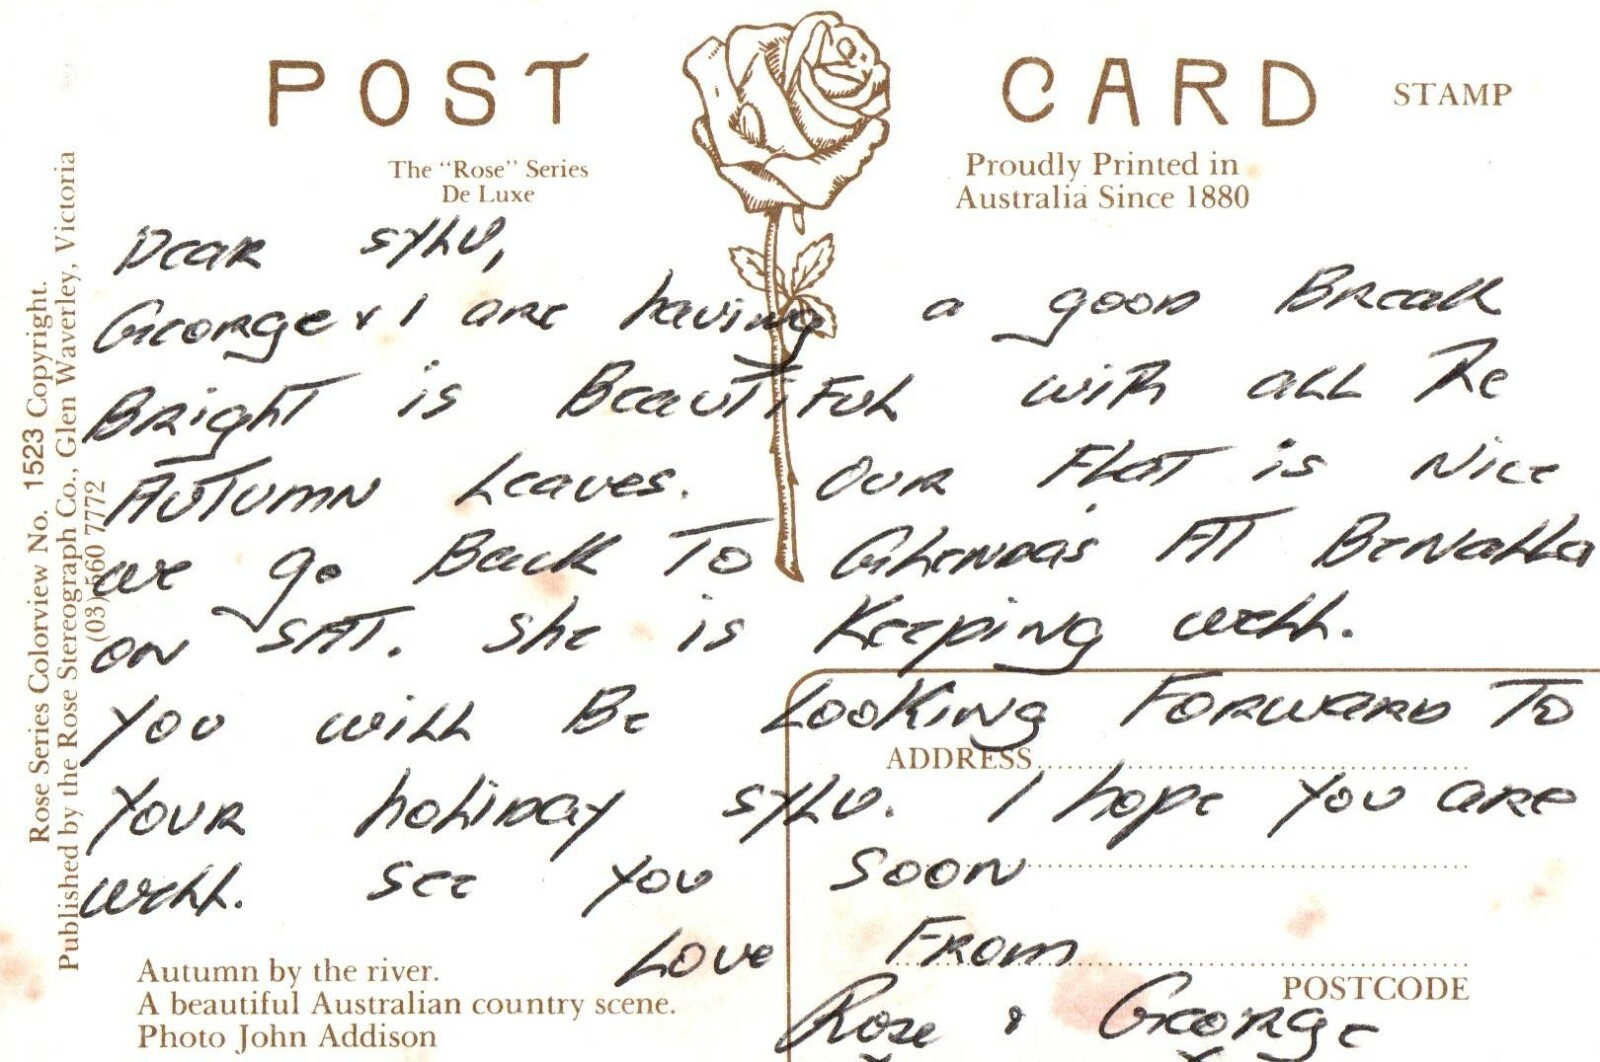 POST CARD
STAMP
The "Rose" Series
De Luxe
Proudly Printed in
Australia Since 1880
Rose Series Colorview No. 1523 Copyright.
Published by the Rose Stereograph Co., Glen Waverley, Victoria
(03) 560 7772
Dear Sylv,
George & I are having a good Break
Bright is Beautiful with all the
Autumn Leaves. Our Flat is Nice
we go Back To Glenda's AT Benalla
on SAT. She is Keeping well.
You will Be Looking Forward To
Your holiday Sylv. I hope You are
well. See You Soon
Love From
Rose & George
ADDRESS
POSTCODE
Autumn by the river.
A beautiful Australian country scene.
Photo John Addison